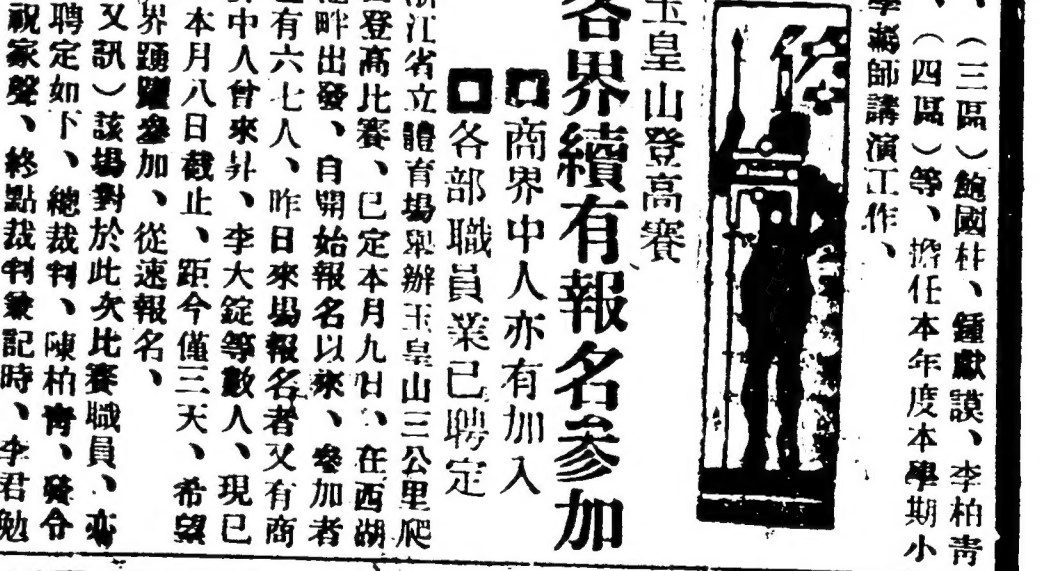 、（三區）鮑國柱、鍾獻謨、李柏靑
、（四區）等、擔任本年度本學期小
學鄕師講演工作、
玉皇山登高賽
各界續有報名參加
商界中人亦有加入
各部職員業已聘定
浙江省立體育場舉辦玉皇山三公里爬
登高比賽、已定本月九日、在西湖
畔出發、自開始報名以來、參加者
有六七人、昨日來場報名者又有商
界中人曾來外、李大錠等數人、現已
本月八日截止、距今僅三天、希望
界踴躍參加、從速報名、
又訊）該場對於此次比賽職員、亦
聘定如下、總裁判、陳柏靑、發令
祝家聲、終點裁判兼記時、李君勉